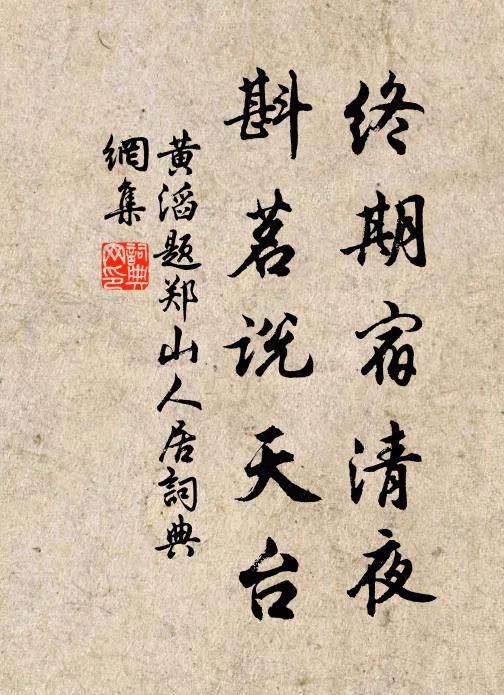 终期宿清夜
斟茗说天台
黄滔题郑山人居詞典
網集
詞典
网印